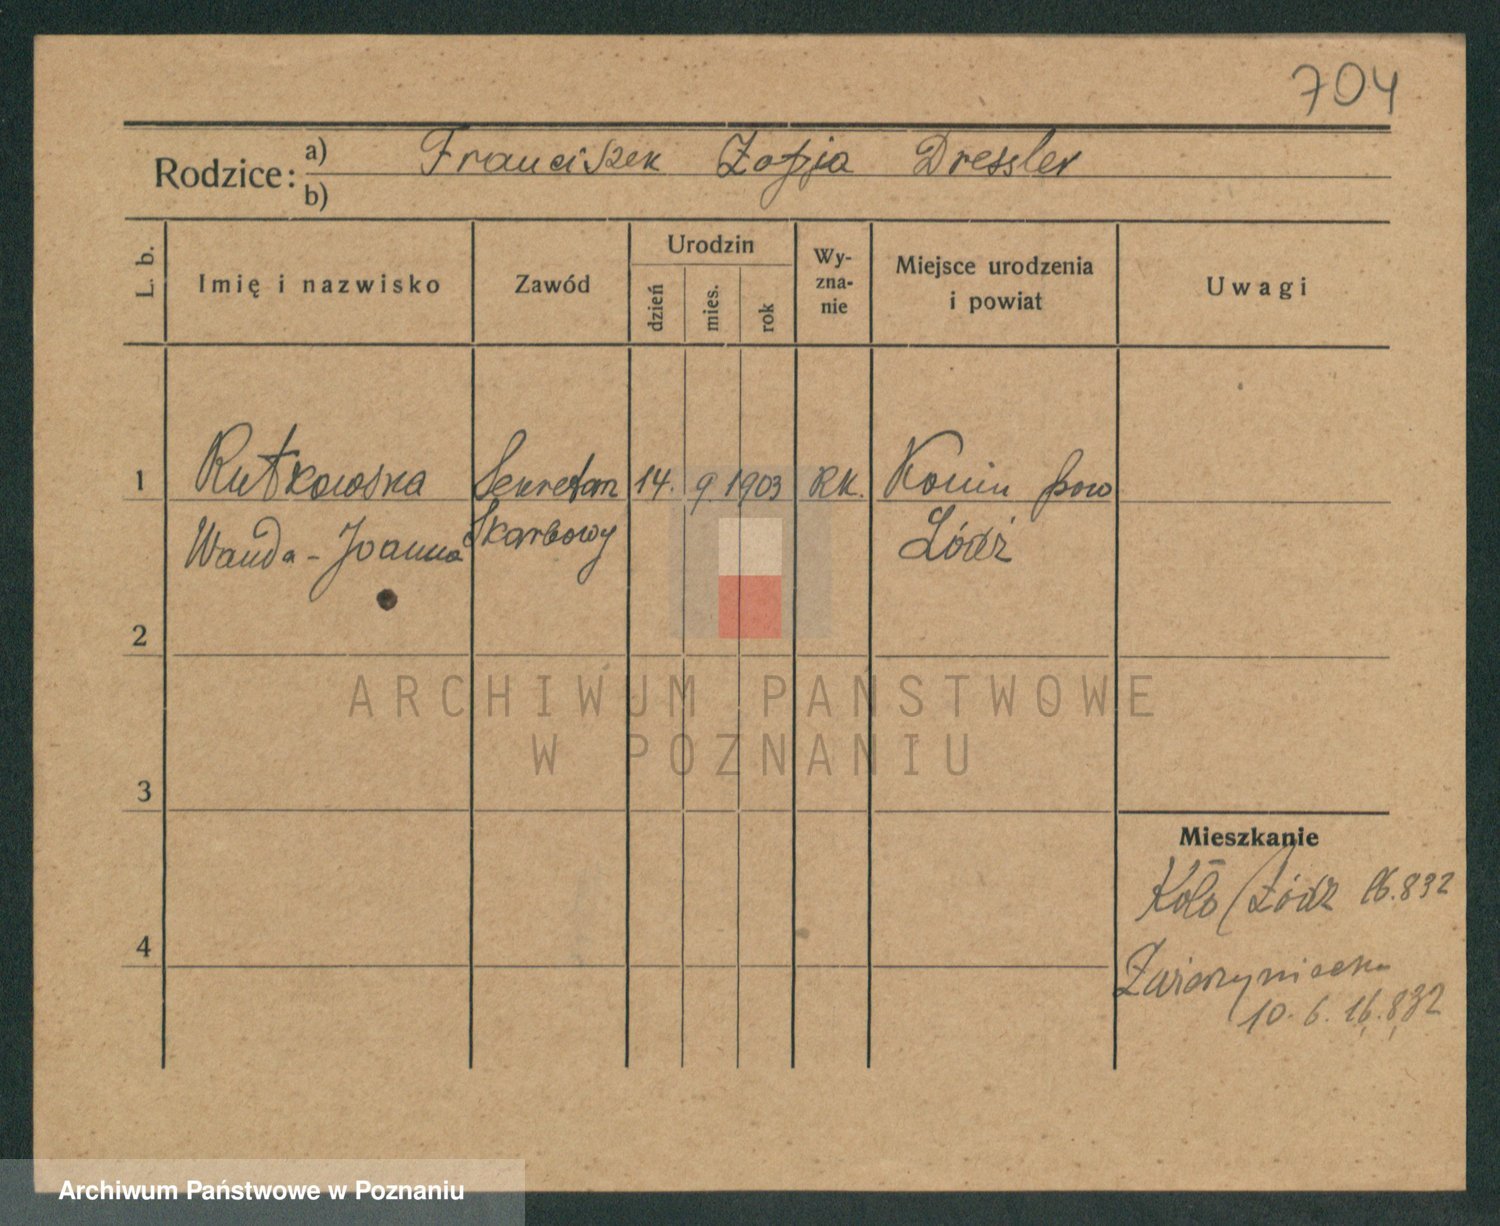 704
Rodzice: a) Franciszek Zofja Dressler
b)
L. b. Imię i nazwisko Zawód Urodzin dzień mies. rok Wy-zna-nie Miejsce urodzenia i powiat Uwagi
1 Rutkowska Sekretarz 14. 9 1903 RK. Konin pow
Wanda - Joanna Skarbowy Łódź
2
ARCHIWUM PAŃSTWOWE
W POZNANIU
3
Mieszkanie
Koło / Łódź 16.832
4
Zwierzyniecka
10. 6. 16.832
Archiwum Państwowe w Poznaniu